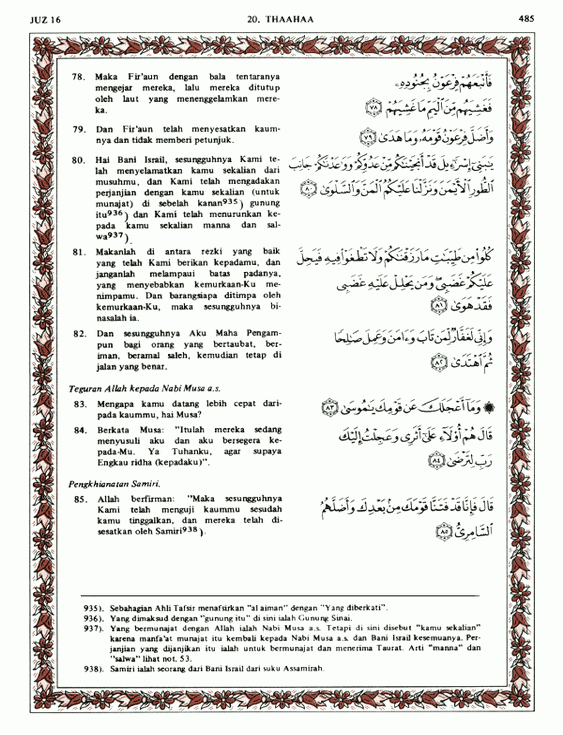 JUZ 16 20. THAAHAA 485
78. Maka Fir'aun dengan bala tentaranya
mengejar mereka, lalu mereka ditutup
oleh laut yang menenggelamkan mere-
ka.
فَأَتْبَعَهُمْ فِرْعَوْنُ بِجُنُودِهِۦ
فَغَشِيَهُم مِّنَ ٱلْيَمِّ مَا غَشِيَهُمْ ﴿٧٨﴾
79. Dan Fir'aun telah menyesatkan kaum-
nya dan tidak memberi petunjuk.
وَأَضَلَّ فِرْعَوْنُ قَوْمَهُۥ وَمَا هَدَىٰ ﴿٧٩﴾
80. Hai Bani Israil, sesungguhnya Kami te-
lah menyelamatkan kamu sekalian dari
musuhmu, dan Kami telah mengadakan
perjanjian dengan kamu sekalian (untuk
munajat) di sebelah kanan935) gunung
itu936) dan Kami telah menurunkan ke-
pada kamu sekalian manna dan sal-
wa937).
يَٰبَنِىٓ إِسْرَٰٓءِيلَ قَدْ أَنجَيْنَٰكُم مِّنْ عَدُوِّكُمْ وَوَٰعَدْنَٰكُمْ جَانِبَ
ٱلطُّورِ ٱلْأَيْمَنَ وَنَزَّلْنَا عَلَيْكُمُ ٱلْمَنَّ وَٱلسَّلْوَىٰ ﴿٨٠﴾
81. Makanlah di antara rezki yang baik
yang telah Kami berikan kepadamu, dan
janganlah melampaui batas padanya,
yang menyebabkan kemurkaan-Ku me-
nimpamu. Dan barangsiapa ditimpa oleh
kemurkaan-Ku, maka sesungguhnya bi-
nasalah ia.
كُلُوا۟ مِن طَيِّبَٰتِ مَا رَزَقْنَٰكُمْ وَلَا تَطْغَوْا۟ فِيهِ فَيَحِلَّ
عَلَيْكُمْ غَضَبِى وَمَن يَحْلِلْ عَلَيْهِ غَضَبِى
فَقَدْ هَوَىٰ ﴿٨١﴾
82. Dan sesungguhnya Aku Maha Pengam-
pun bagi orang yang bertaubat, ber-
iman, beramal saleh, kemudian tetap di
jalan yang benar.
وَإِنِّى لَغَفَّارٌ لِّمَن تَابَ وَءَامَنَ وَعَمِلَ صَٰلِحًا
ثُمَّ ٱهْتَدَىٰ ﴿٨٢﴾
Teguran Allah kepada Nabi Musa a.s.
83. Mengapa kamu datang lebih cepat dari-
pada kaummu, hai Musa?
وَمَآ أَعْجَلَكَ عَن قَوْمِكَ يَٰمُوسَىٰ ﴿٨٣﴾
84. Berkata Musa: "Itulah mereka sedang
menyusuli aku dan aku bersegera ke-
pada-Mu. Ya Tuhanku, agar supaya
Engkau ridha (kepadaku)".
قَالَ هُمْ أُو۟لَآءِ عَلَىٰٓ أَثَرِى وَعَجِلْتُ إِلَيْكَ
رَبِّ لِتَرْضَىٰ ﴿٨٤﴾
Pengkhianatan Samiri.
85. Allah berfirman: "Maka sesungguhnya
Kami telah menguji kaummu sesudah
kamu tinggalkan, dan mereka telah di-
sesatkan oleh Samiri938).
قَالَ فَإِنَّا قَدْ فَتَنَّا قَوْمَكَ مِنۢ بَعْدِكَ وَأَضَلَّهُمُ
ٱلسَّامِرِىُّ ﴿٨٥﴾
935). Sebahagian Ahli Tafsir menafsirkan "al aiman" dengan "Yang diberkati".
936). Yang dimaksud dengan "gunung itu" di sini ialah Gunung Sinai.
937). Yang bermunajat dengan Allah ialah Nabi Musa a.s. Tetapi di sini disebut "kamu sekalian"
karena manfa'at munajat itu kembali kepada Nabi Musa a.s. dan Bani Israil kesemuanya. Per-
janjian yang dijanjikan itu ialah untuk bermunajat dan menerima Taurat. Arti "manna" dan
"salwa" lihat not. 53.
938). Samiri ialah seorang dari Bani Israil dari suku Assamirah.